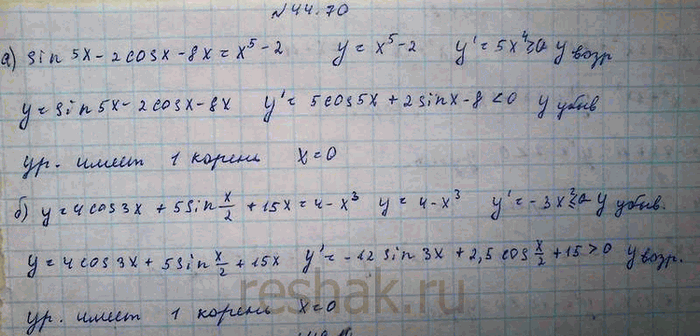 №44.70
а) sin 5x - 2cosx - 8x = x⁵ - 2 y = x⁵ - 2 y' = 5x⁴ ≥ 0 y возр
y = sin 5x - 2cosx - 8x y' = 5cos5x + 2sinx - 8 < 0 y убыв
ур. имеет 1 корень x = 0
б) y = 4cos3x + 5sin x/2 + 15x = 4 - x³ y = 4 - x³ y' = -3x² ≤ 0 y убыв.
y = 4cos3x + 5sin x/2 + 15x y' = -12sin3x + 2,5cos x/2 + 15 > 0 y возр.
ур. имеет 1 корень x = 0
reshak.ru